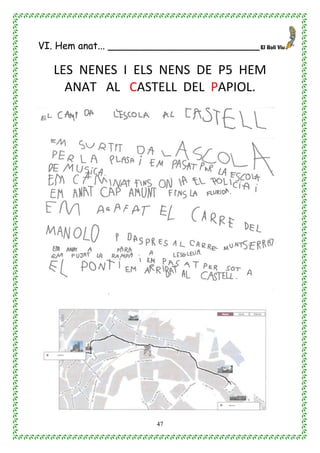 VI. Hem anat... El Roli Viu
LES NENES I ELS NENS DE P5 HEM
ANAT AL CASTELL DEL PAPIOL.
EL CAMÍ DA L'ESCOLA AL CASTELL
EM SURTIT DA LASCOLA
PERLA PLASA I EM PASAT PER LA ESCOLA
DE MUSICA.
EM CAMINAT FINS ON IA EL POLICIA I
EM ANAT CAP AMUNT FINS LA
EM AGAFAT EL CARRE DEL
MANOLO I DASPRES AL CARRE MUNTSERRAT
EM ANAT A MÀRA A LESGLEUR
EM PUJAT LA RAMPA I EM PASAT PER SOT A
EL PONT I EM ARRIBAT AL CASTELL.
47